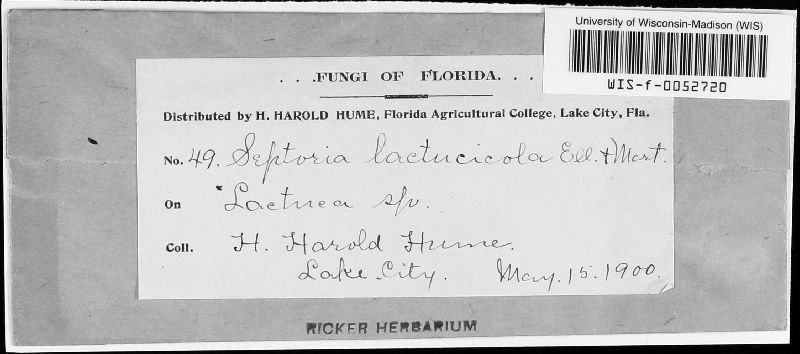 University of Wisconsin-Madison (WIS)
WIS-f-0052720
. . .FUNGI OF FLORIDA. . .
Distributed by H. HAROLD HUME, Florida Agricultural College, Lake City, Fla.
No. 49. Septoria lactucicola Ell. & Mart.
On Lactuca sp.
Coll. H. Harold Hume.
Lake City. May. 15. 1900.
RICKER HERBARIUM